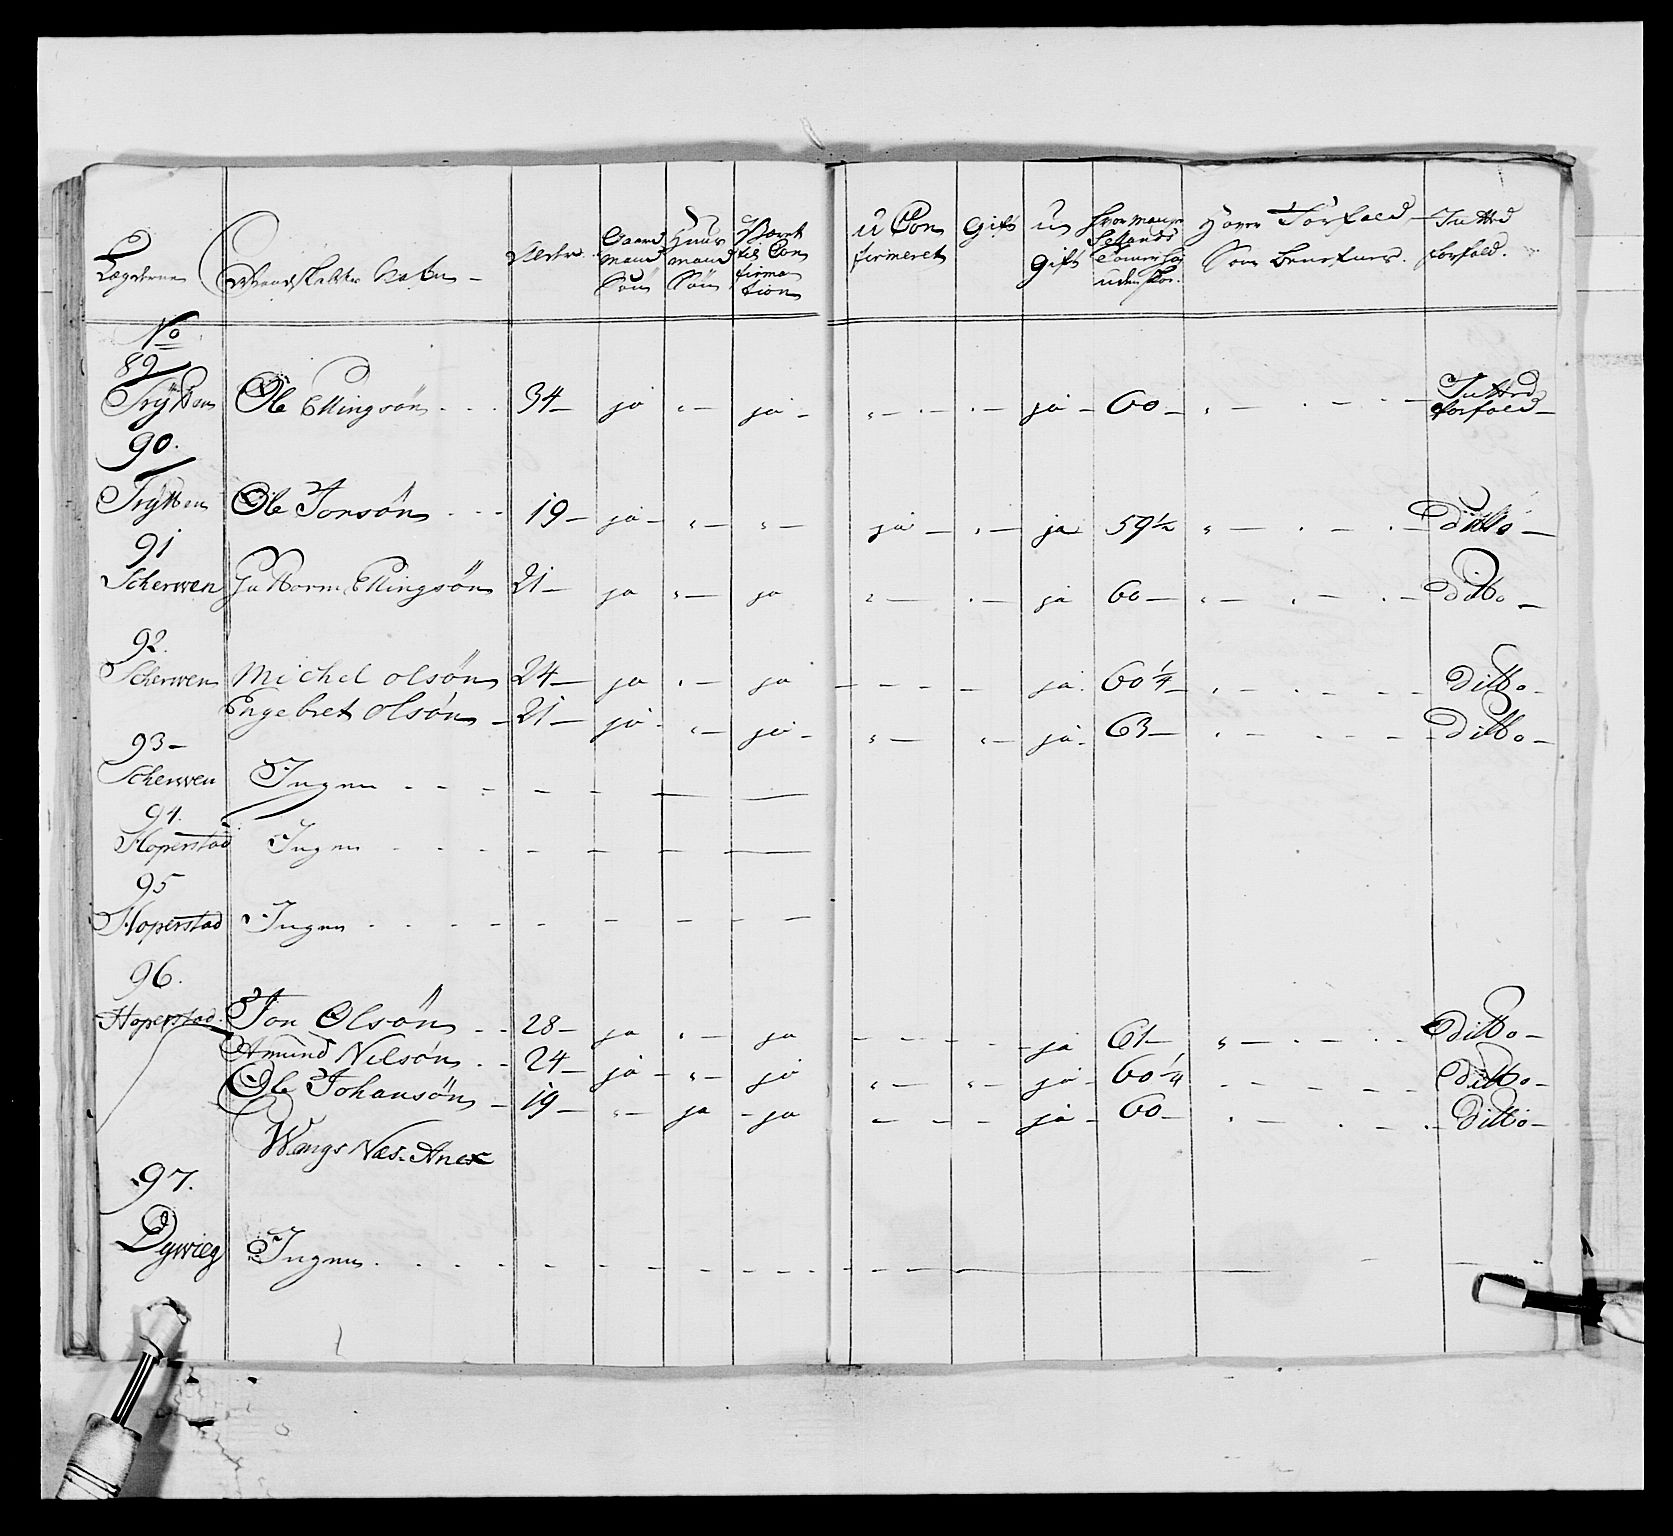 Lægderne Mandskabets Nafn Alder Gaard mand Søn Huus mand Søn Været til Con firma tion u Con firmeret Gift u Gift Hvor mange Sellands Tomer høj uden skoe. Haver Forfald Som benefnes. Intted forfald.
No
89
Trÿtten Ole Ellingsøn 34 ja „ ja „ ja 60 „ Intted forfald
90.
Trÿtten Ole Jonsøn 19 ja „ „ ja „ ja 59½ „ Ditto
91
Scherwen Guttorm Ellingsøn 21 ja „ ja „ ja 60 „ Ditto
92.
Scherwen Michel olsøn 24 ja „ ja ja 60¼ „ Ditto
Engebret olsøn 21 ja „ ja „ „ ja 63 „ Ditto
93
Scherwen Ingen
94.
Hoperstad Ingen
95
Hoperstad Ingen
96.
Hoperstad. Jon Olsøn 28 ja „ ja ja 61 „ Ditto
Amund Nilsøn 24 ja „ ja „ „ ja 60¼ Ditto
Ole Johansøn 19 „ ja ja ja 60 „ Ditto
Wangs Næs Anex
97.
Dywieg Ingen